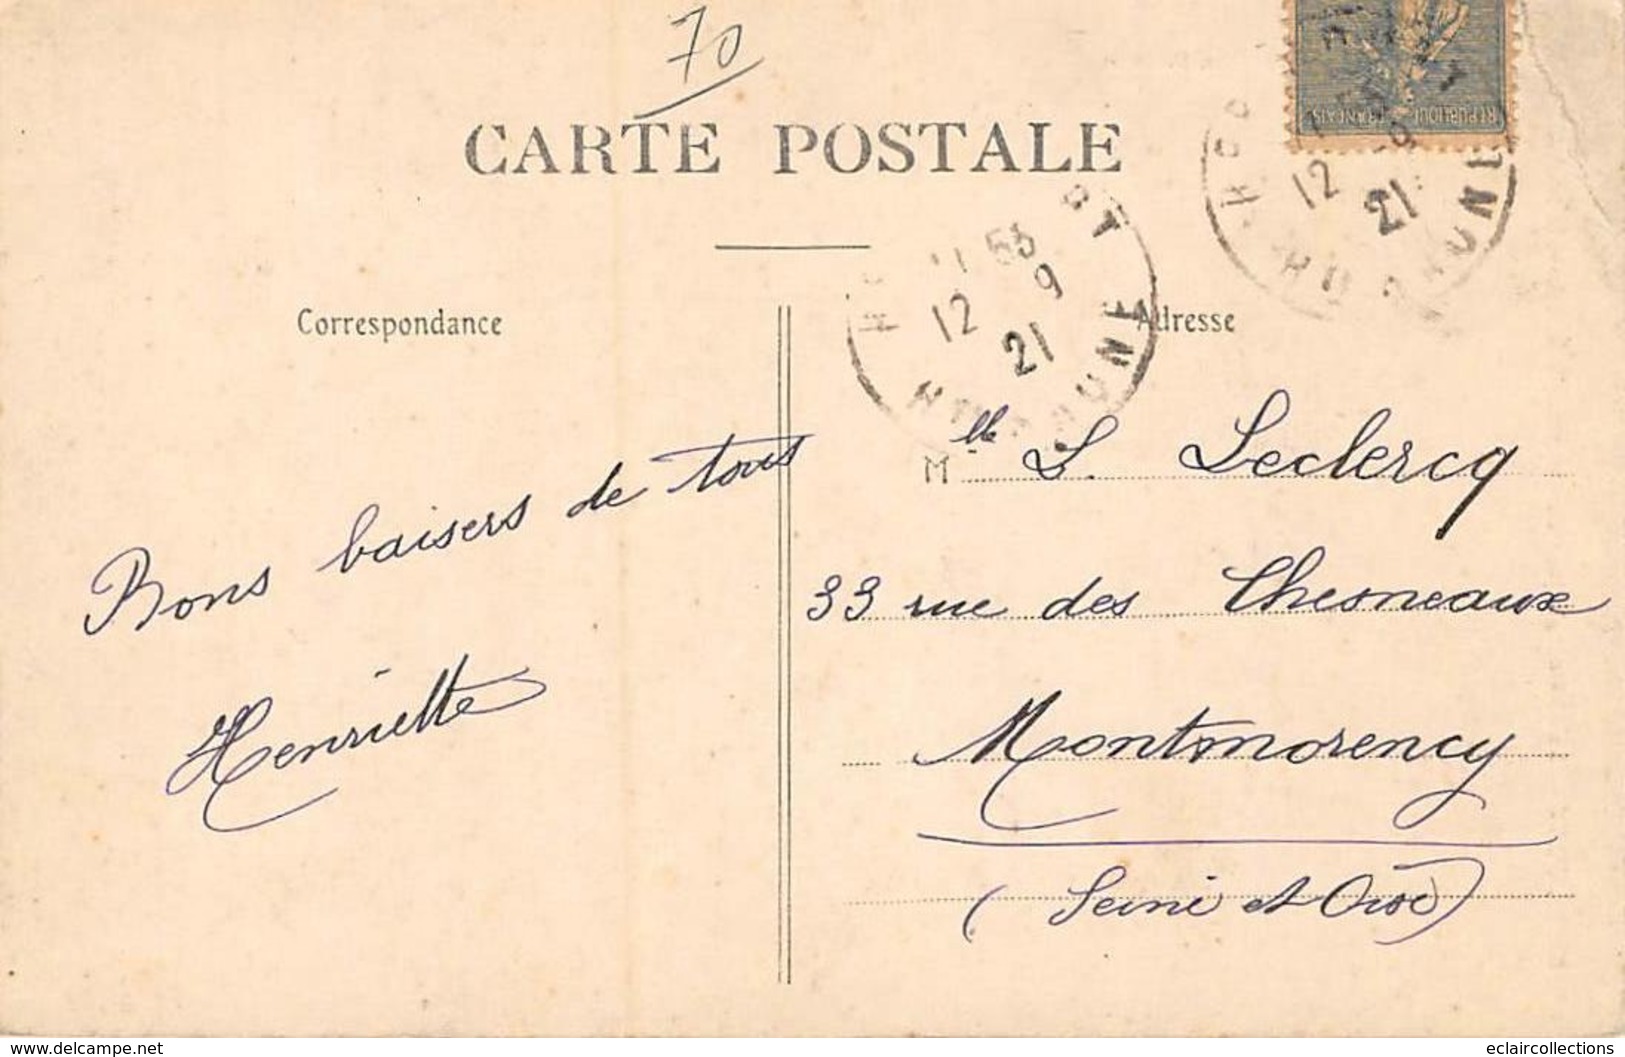 70
CARTE POSTALE
REPUBLIQUE FRANÇAISE
12 9
21
11 55
12 9
21
Correspondance
Adresse
Mlle L. Leclercq
33 rue des Chesneaux
Montmorency
(Seine et Oise)
Bons baisers de tous
Henriette
www.delcampe.net
eclaircollections